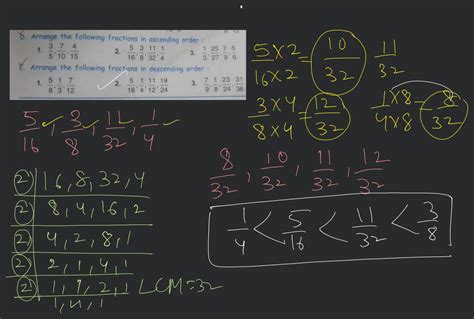 D. Arrange the following fractions in ascending order:
1. 3/5, 7/10, 4/15 2. 5/16, 3/8, 11/32, 1/4 3. 1/3, 25/27, 7/9, 5/6
E. Arrange the following fractions in descending order
1. 5/9, 1/3, 7/12 2. 5/16, 1/4, 11/12, 19/24 3. 7/9, 1/8, 23/24, 31/36
5/16, 3/8, 11/32, 1/4
2) 16, 8, 32, 4
2) 8, 4, 16, 2
2) 4, 2, 8, 1
2) 2, 1, 4, 1
2) 1, 1, 2, 1 LCM=32
1, 1, 1
5×2/16×2 = 10/32 11/32
3×4/8×4 = 12/32 1×8/4×8 = 8/32
8/32, 10/32, 11/32, 12/32
1/4 < 5/16 < 11/32 < 3/8